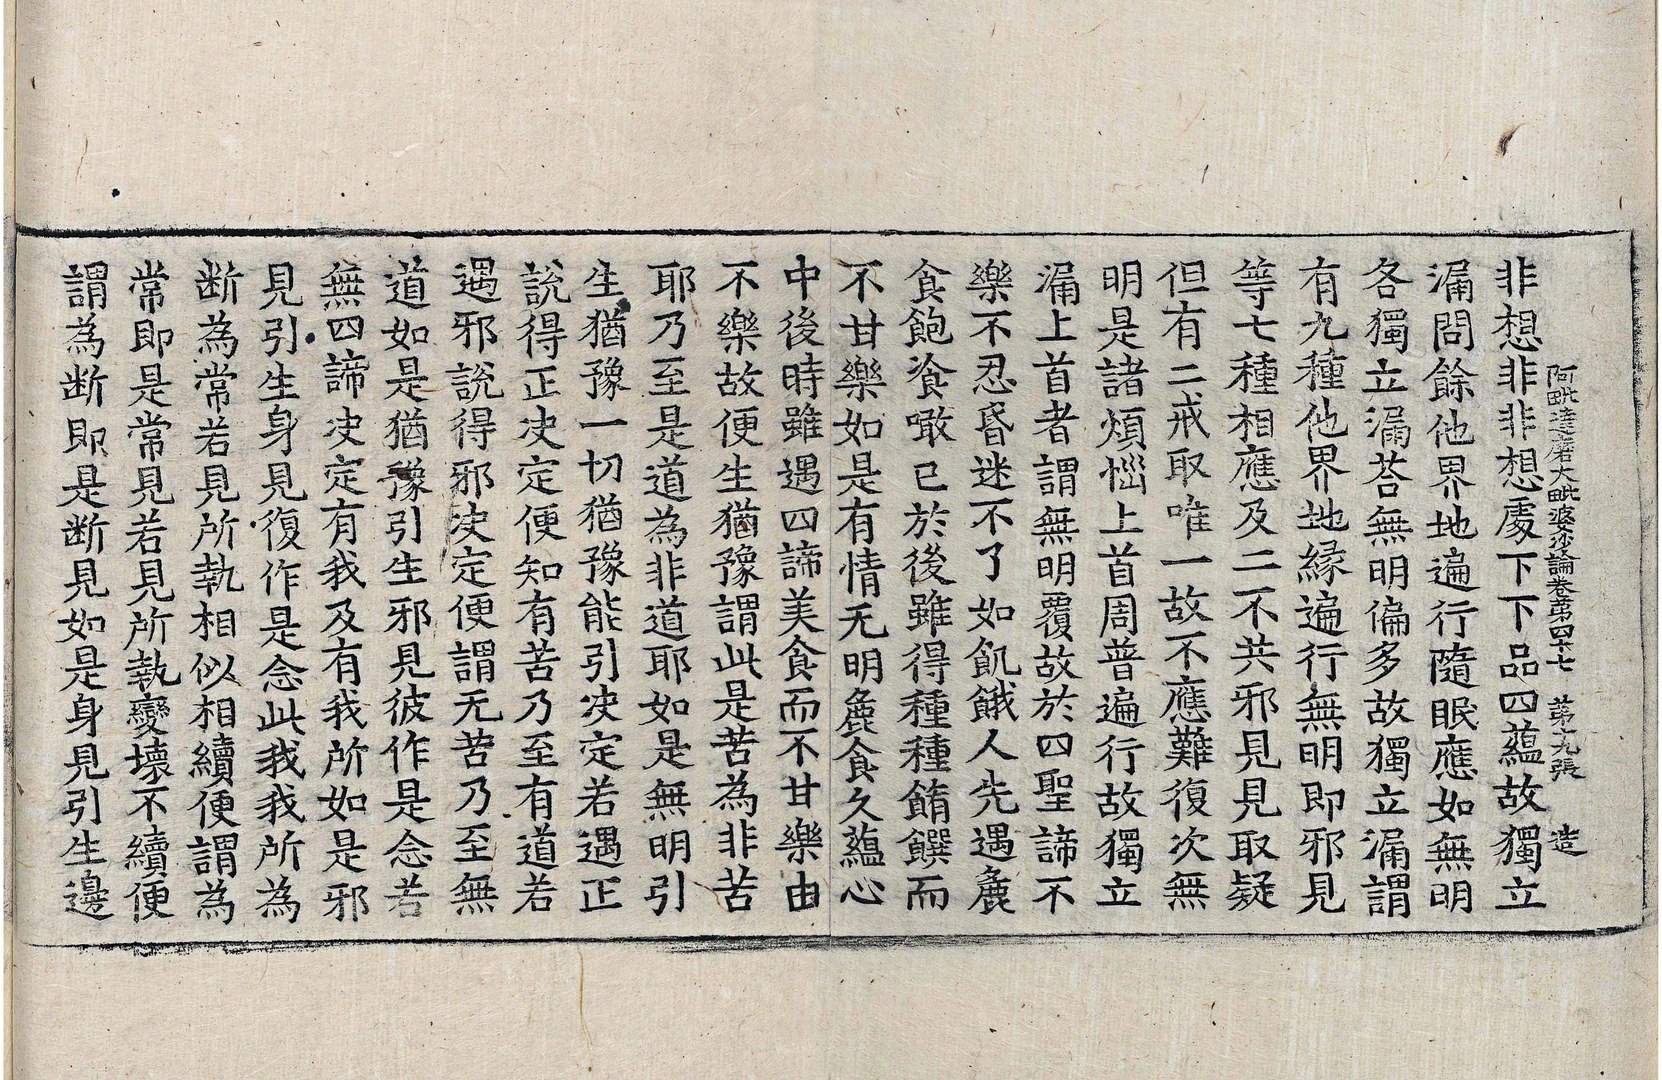 阿毗達磨大毗婆沙論卷第四十七　第九張　造
非想非非想處下下品四蘊故獨立
漏問餘他界地遍行隨眠應如無明
各獨立漏荅無明偏多故獨立漏謂
有九種他界地緣遍行無明即邪見
等七種相應及二不共邪見見取疑
但有二戒取唯一故不應難復次無
明是諸煩惱上首周普遍行故獨立
漏上首者謂無明覆故於四聖諦不
樂不忍昏迷不了如飢餓人先遇麁
食飽飡噉已於後雖得種種餚饌而
不甘樂如是有情无明麁食久蘊心
中後時雖遇四諦美食而不甘樂由
不樂故便生猶豫謂此是苦為非苦
耶乃至是道為非道耶如是無明引
生猶豫一切猶豫能引决定若遇正
說得正决定便知有苦乃至有道若
遇邪說得邪决定便謂无苦乃至無
道如是猶豫引生邪見彼作是念若
無四諦决定有我及有我所如是邪
見引生身見復作是念此我我所為
断為常若見所執相似相續便謂為
常即是常見若見所執變壞不續便
謂為断即是断見如是身見引生邊